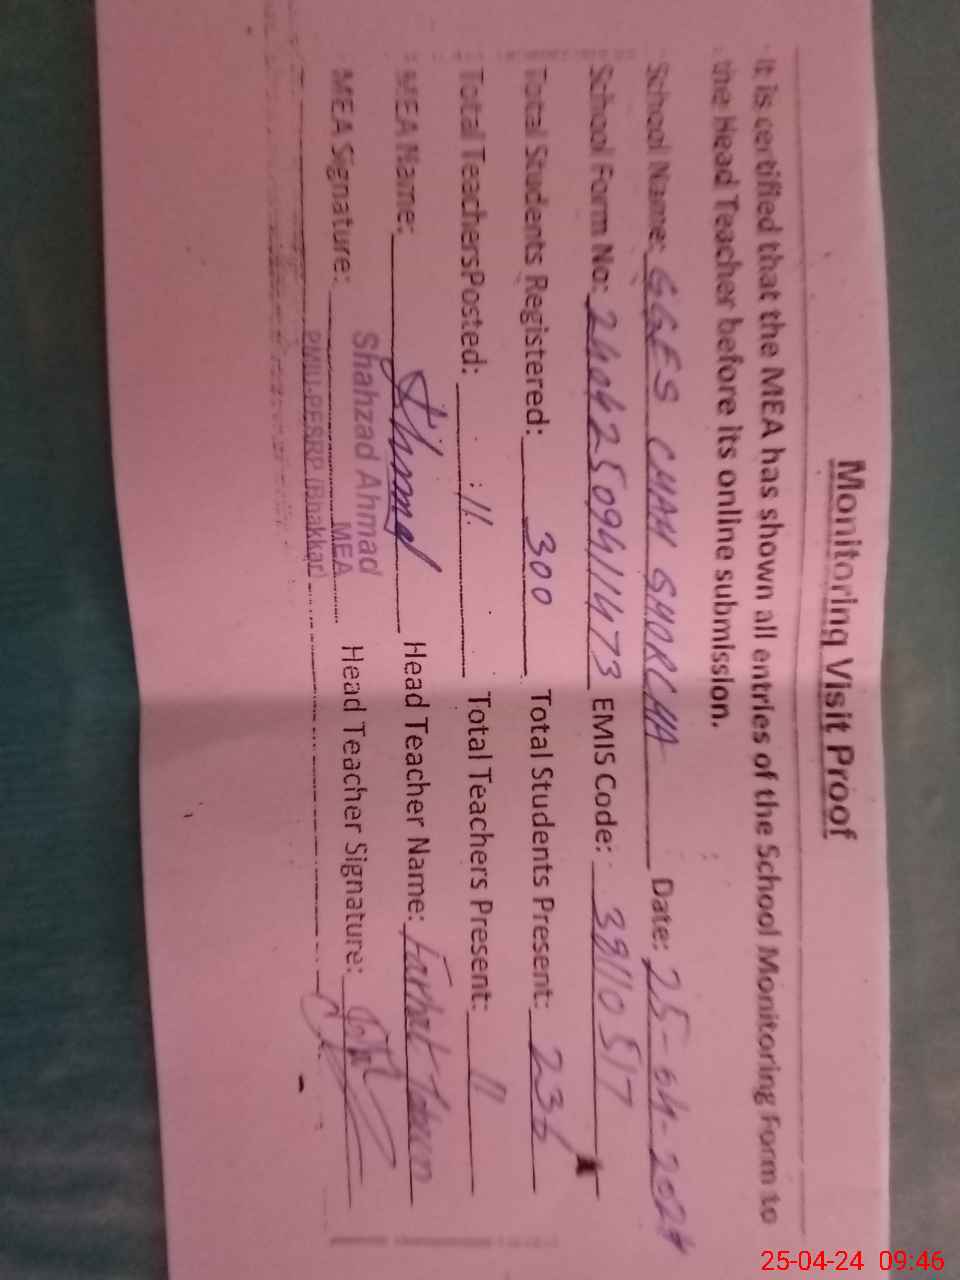 Monitoring Visit Proof
It is certified that the MEA has shown all entries of the School Monitoring Form to
the Head Teacher before its online submission.
School Name: GGES CHAH GHORCHA Date: 25-04-2024
School Form No: 24042509411473 EMIS Code: 38110517
Total Students Registered: 300 Total Students Present: 236
Total TeachersPosted: 11 Total Teachers Present: 11
MEA Name: Ahmad Head Teacher Name: Farhat
MEA Signature: Head Teacher Signature:
Shahzad Ahmad
MEA
PMIU-PESRP (Bhakkar)
25-04-24 09:46